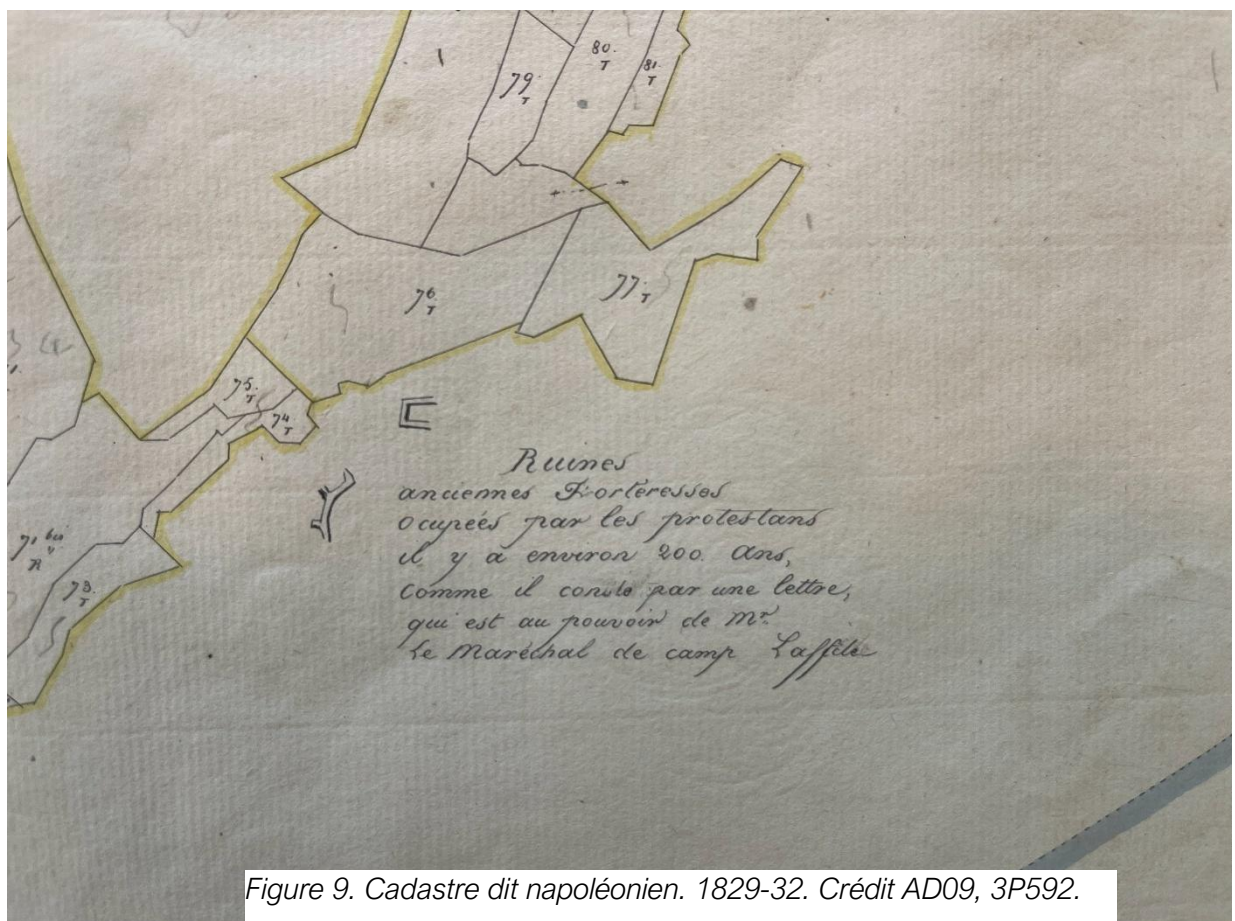 79. T
80. T
81. T
76. T
77. T
75. T
74. T
71 bis R
73. T
Ruines
anciennes Forteresses
ocupées par les protestans
il y a environ 200. ans,
comme il conste par une lettre,
qui est au pouvoir de Mr.
Le Maréchal de camp Laffite
Figure 9. Cadastre dit napoléonien. 1829-32. Crédit AD09, 3P592.